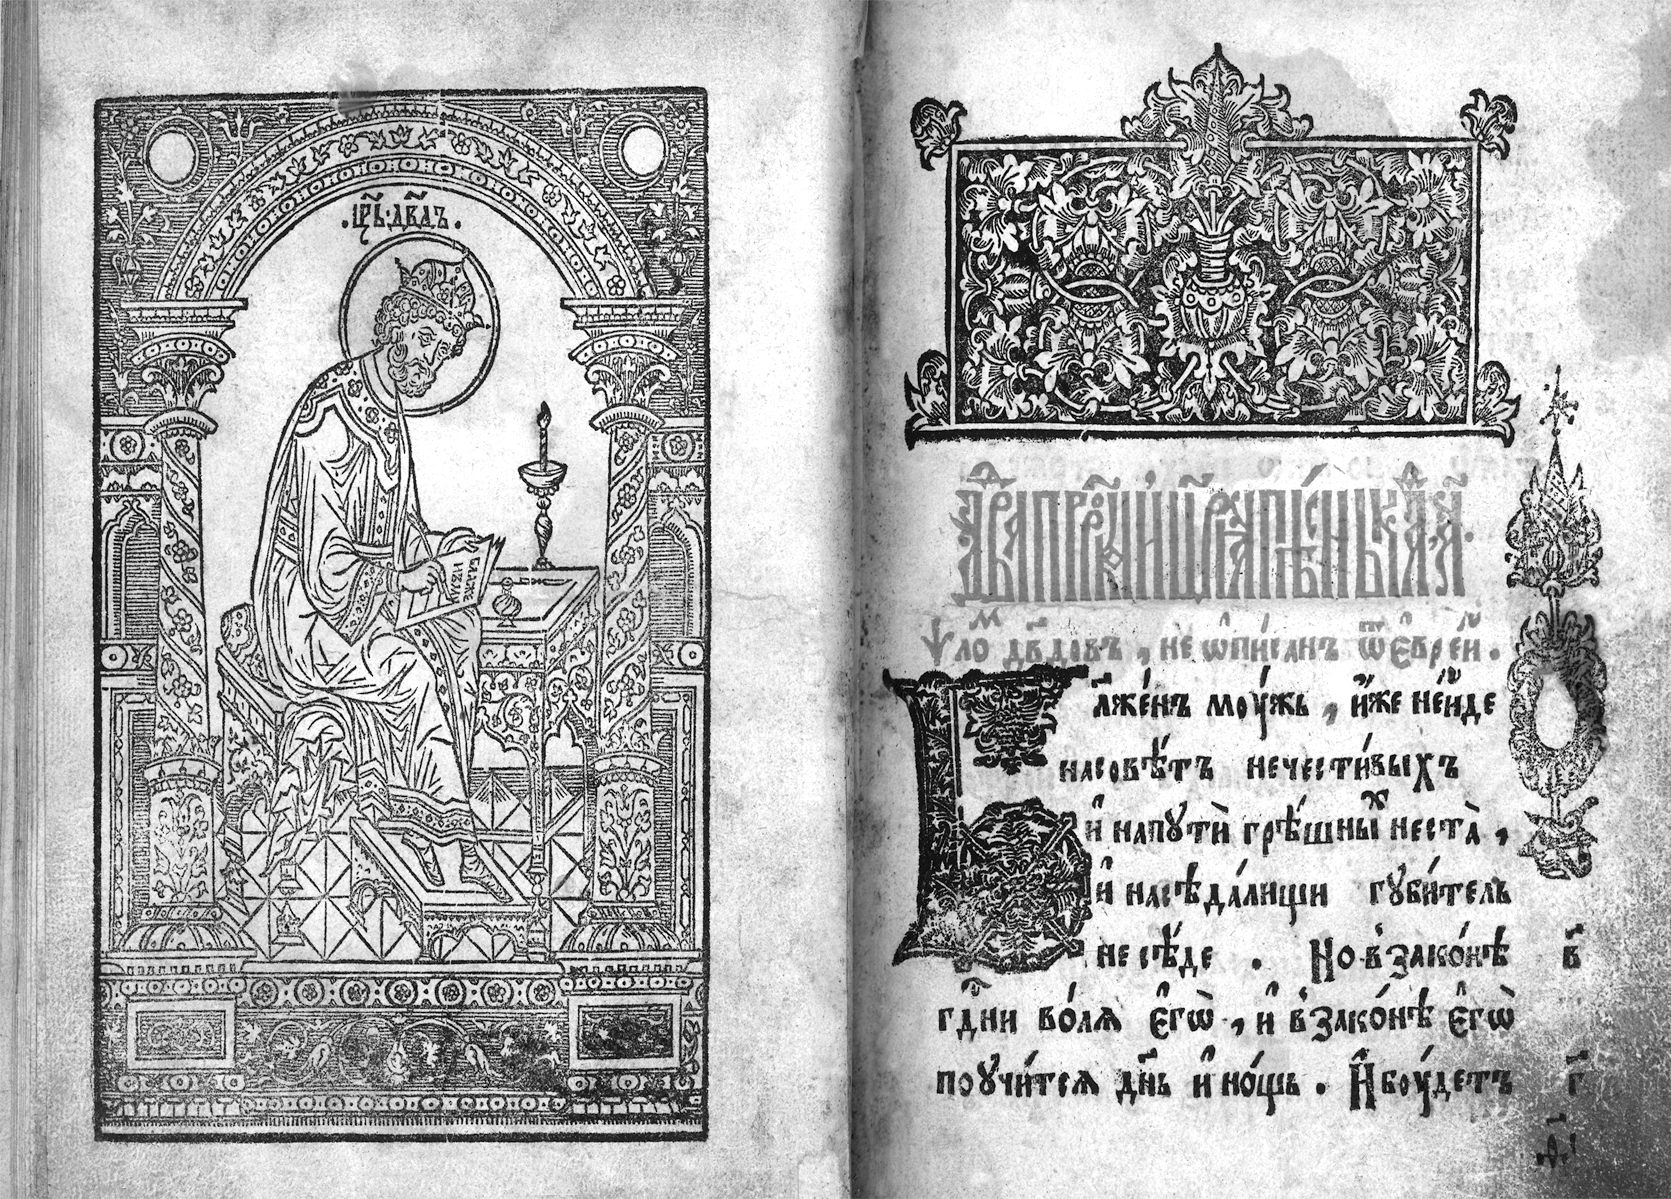 .црь·двдъ.
блаже
ѱло́мъ дв҃довъ, не ѡ҆пи́санъ ѿ є҆вре́й.
Б
л҃же́нъ мѹ́жь, и҆́же не́иде
насовѣ́тъ нечести́выхъ
и҆ напути̑ грѣ́шныⷯ неста̀,
и҆ насѣда́лищи гѹби́тель
не сѣ́де . Но в̾зако́нѣ
в҃
гд҃ни во́лѧ є҆гѡ̀, и҆ в̾зако́нѣ є҆гѡ̀
поучи́тсѧ дн҃ь и҆ но́щь. И҆ бѹ́детъ
г҃